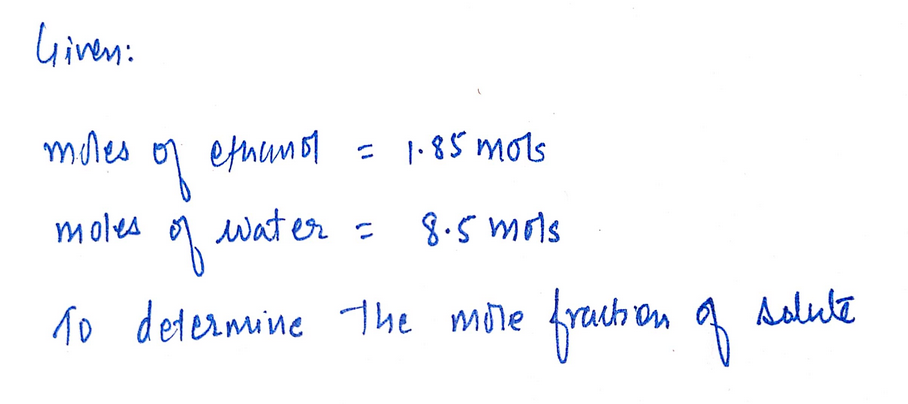 Given:
moles of ethanol = 1.85 mols
moles of water = 8.5 mols
To determine The mole fraction of solute